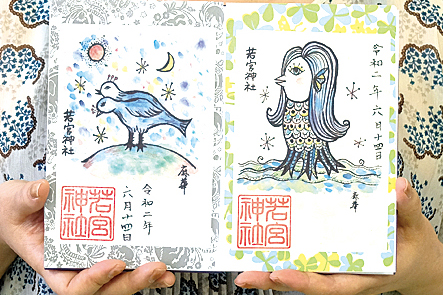 若宮神社
麻華
令和二年
六月十四日
若宮
神社
令和二年六月十四日
若宮神社
若宮
神社